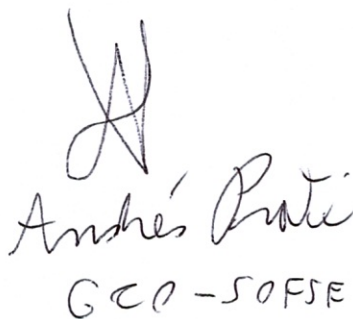 Andrés Prati
GCO - SOFSE